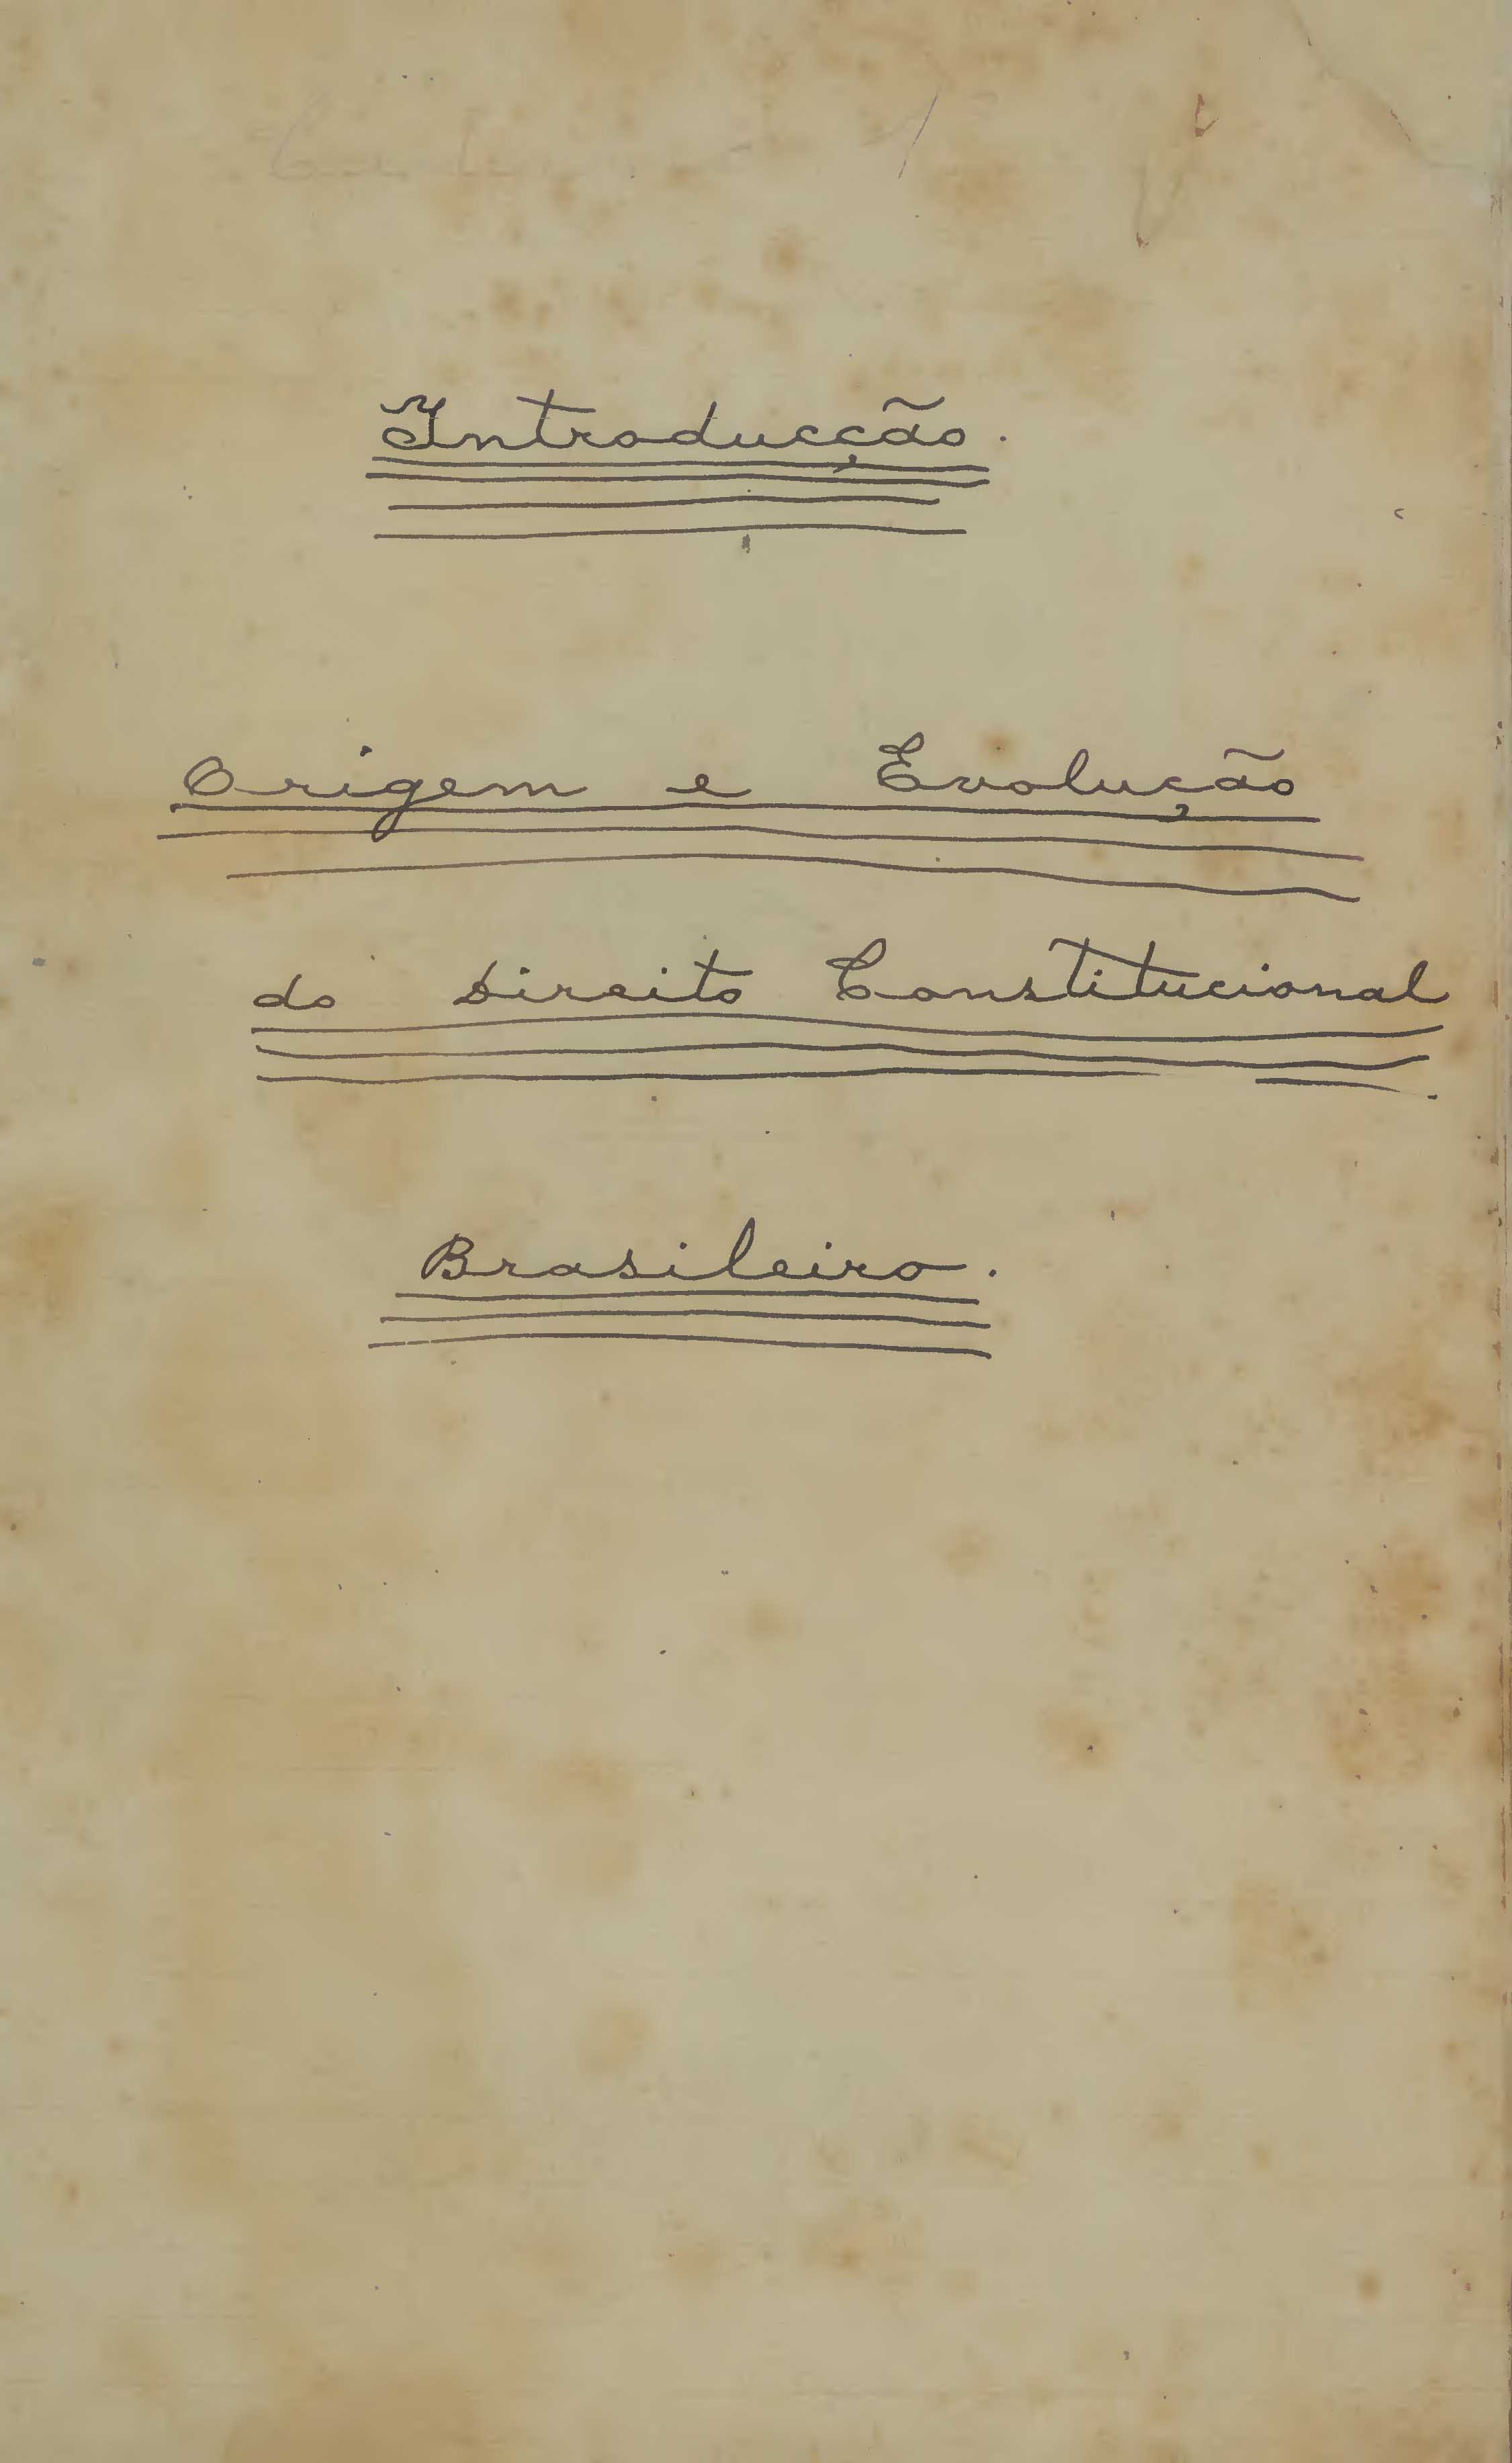 Introducção.
Origem e Evolução
do Direito Constitucional
Brasileiro.